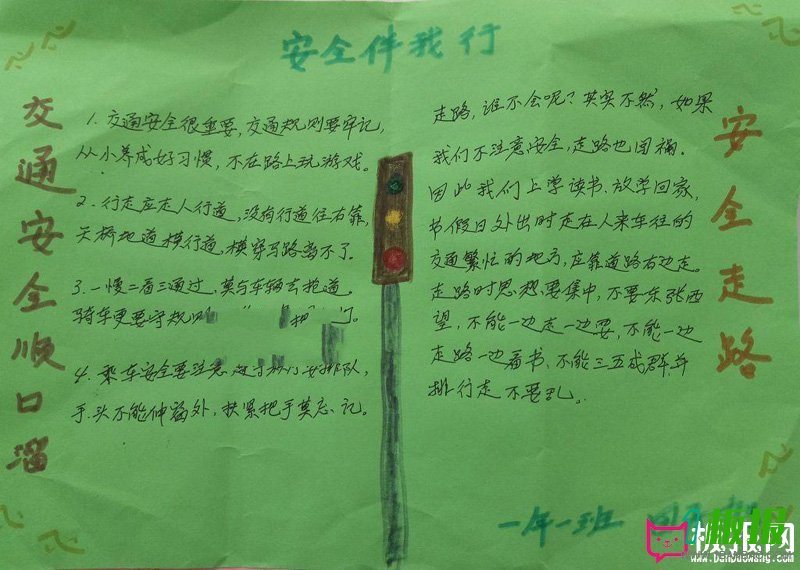 安全伴我行
交通安全顺口溜
1. 交通安全很重要，交通规则要牢记，
从小养成好习惯，不在路上玩游戏。
2. 行走应走人行道，没有行道往右靠，
天桥地道横行道，横穿马路离不了。
3. 一慢二看三通过，莫与车辆去抢道。
骑车更要守规
4. 乘车安全要注意 队，
手.头不能伸窗外，扶紧把手莫忘.记。
走路，谁不会呢？其实不然，如果
我们不注意安全，走路也闯祸．
因此我们上学读书、放学回家，
节假日外出时走在人来车往的
交通繁忙的地方，应靠道路右边走。
走路时思想要集中，不要东张西
望，不能一边走一边耍，不能一边
走路一边看书，不能三五成群并
排行走 不要乱。
安全走路
一年一班
板报网
www.banbaowang.com